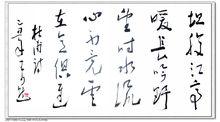 坦腹江亭
暖长吟野
望时水流
心不竞云
在意俱迟
杜甫诗